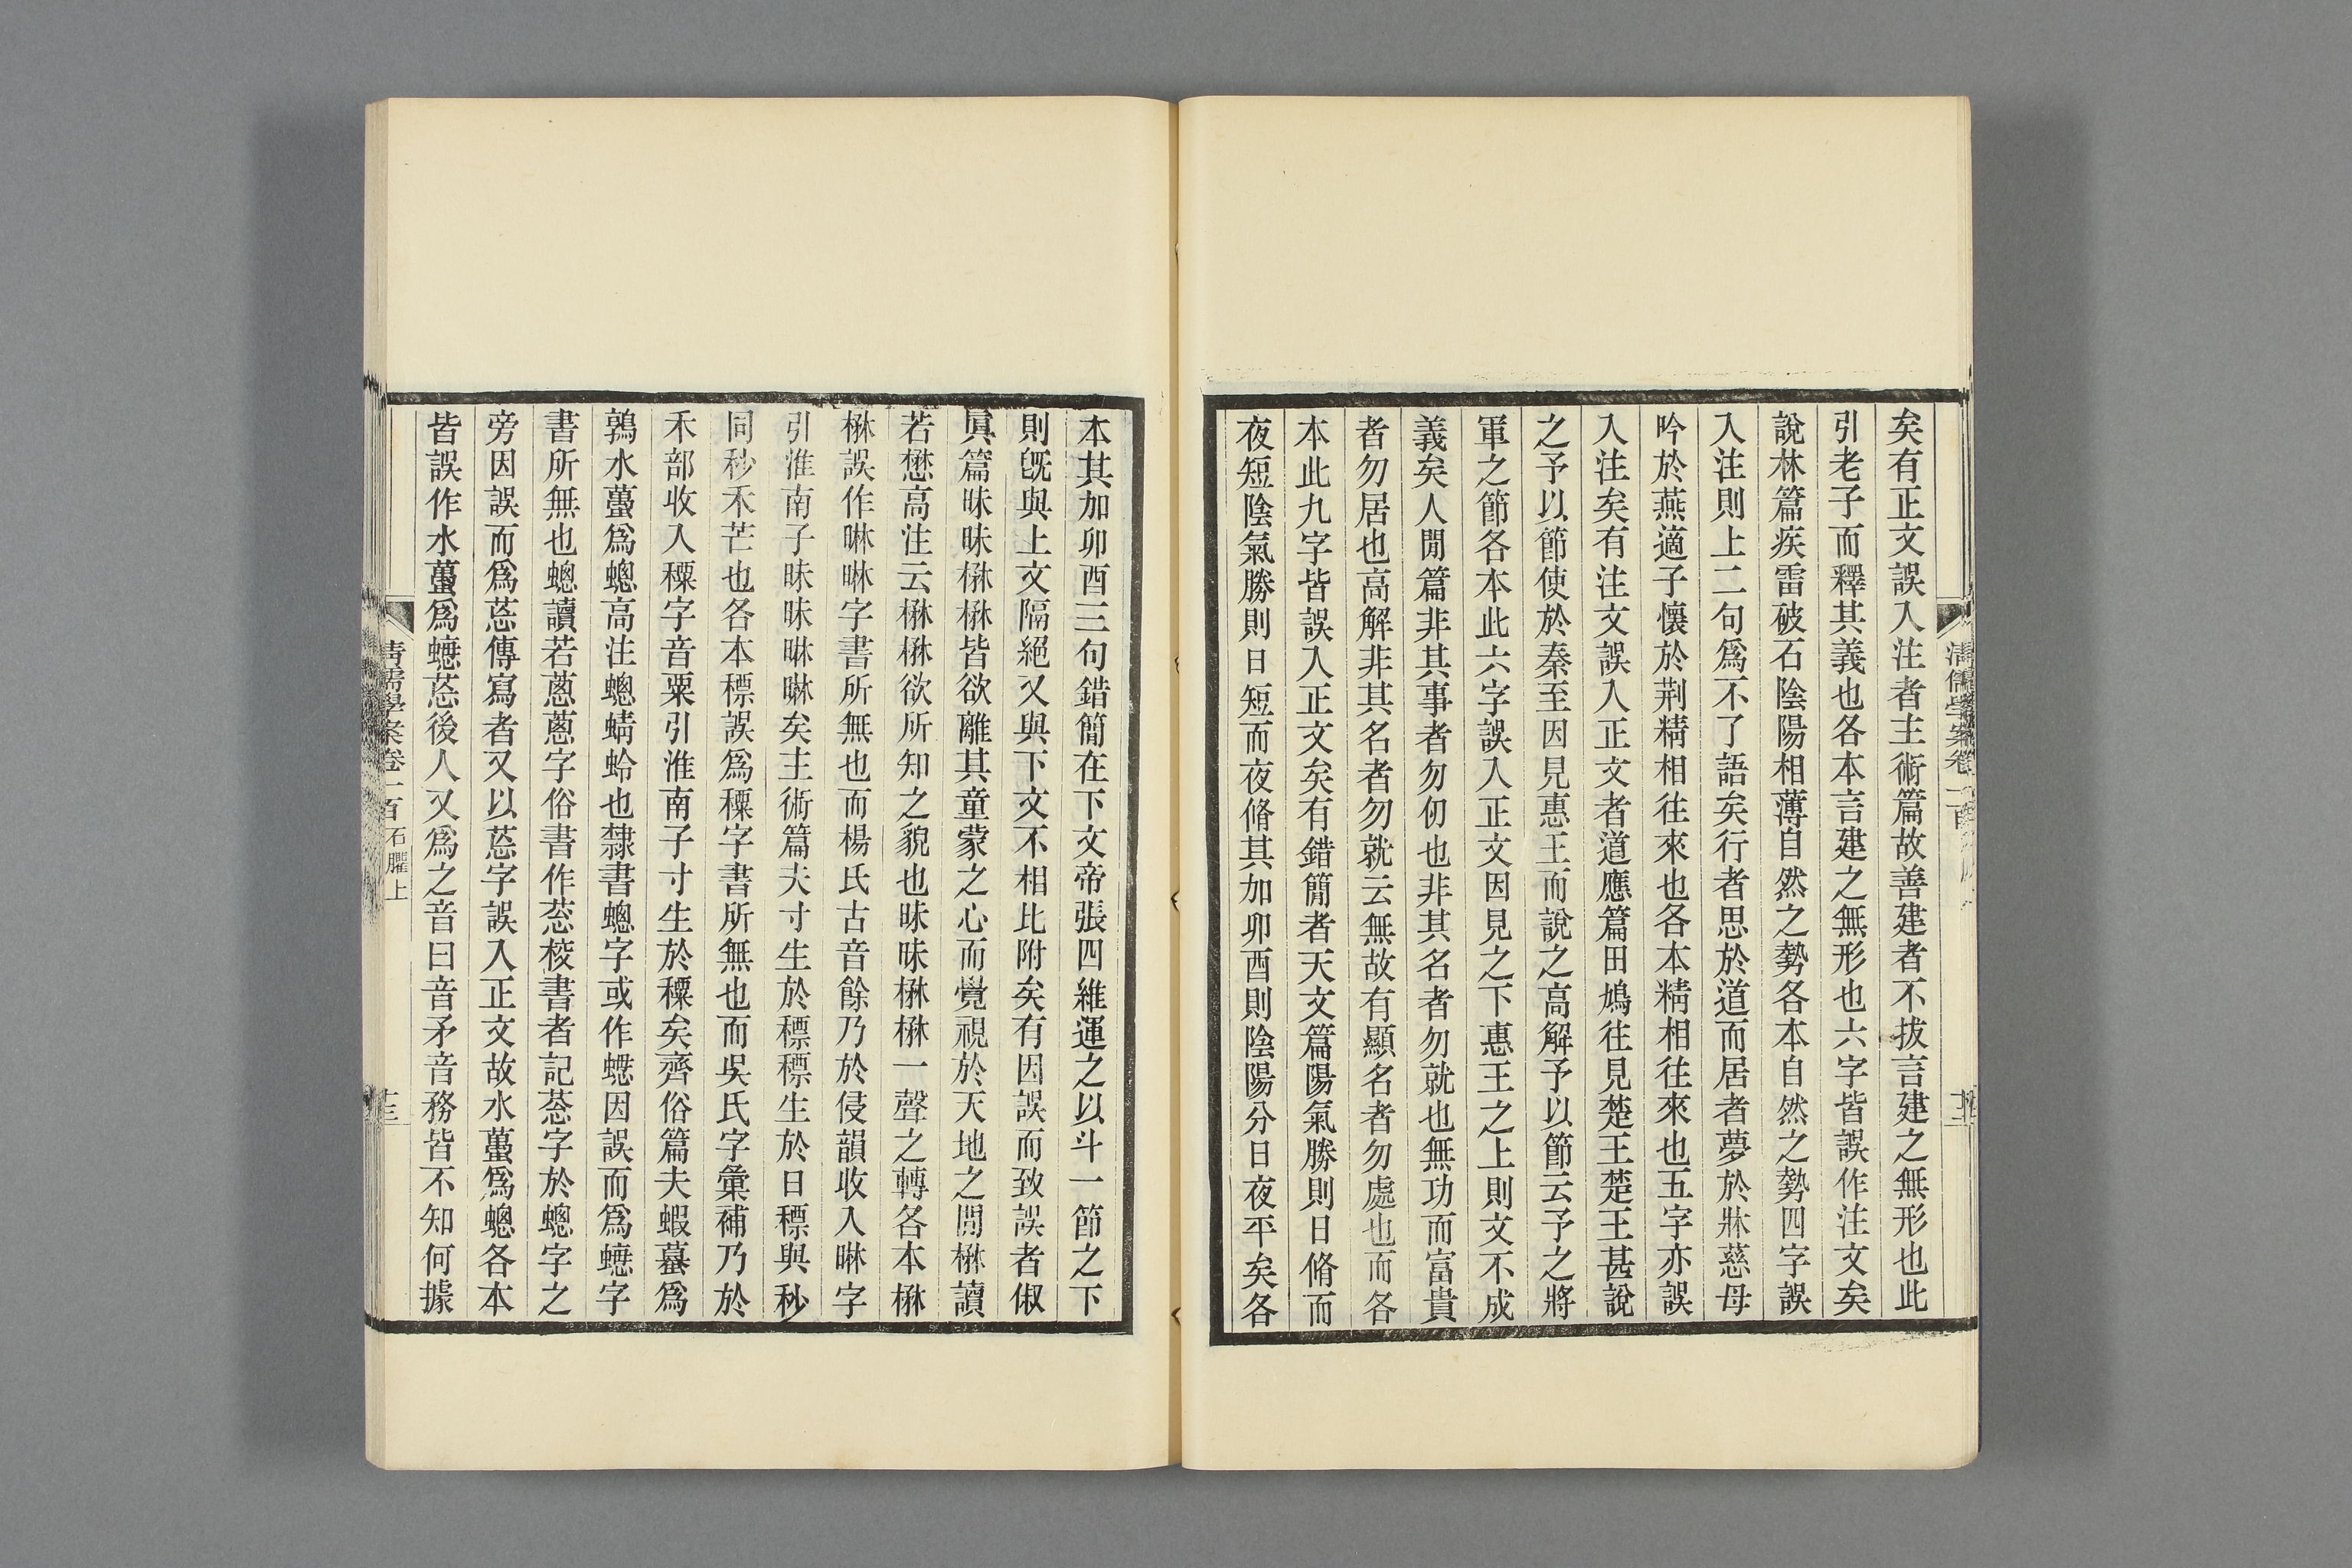 矣有正文誤入注者主術篇故善建者不拔言建之無形也此
引老子而釋其義也各本言建之無形也六字皆誤作注文矣
說林篇疾雷破石陰陽相薄自然之勢各本自然之勢四字誤
入注則上二句爲不了語矣行者思於道而居者夢於牀慈母
吟於燕適子懷於荆精相往來也各本精相往來也五字亦誤
入注矣有注文誤入正文者道應篇田鳩往見楚王楚王甚說
之予以節使於秦至因見惠王而說之高解予以節云予之將
軍之節各本此六字誤入正文因見之下惠王之上則文不成
義矣人閒篇非其事者勿仞也非其名者勿就也無功而富貴
者勿居也高解非其名者勿就云無故有顯名者勿處也而各
本此九字皆誤入正文矣有錯簡者天文篇陽氣勝則日脩而
夜短陰氣勝則日短而夜脩其加卯酉則陰陽分日夜平矣各
本其加卯酉三句錯簡在下文帝張四維運之以斗一節之下
則旣與上文隔絕又與下文不相比附矣有因誤而致誤者俶
眞篇昧昧楙楙皆欲離其童蒙之心而覺視於天地之閒楙讀
若懋高注云楙楙欲所知之貌也昧昧楙楙一聲之轉各本楙
楙誤作晽晽字書所無也而楊氏古音餘乃於侵韻收入晽字
引淮南子昧昧晽晽矣主術篇夫寸生於䅺䅺生於日䅺與秒
同秒禾芒也各本䅺誤爲𥠵字書所無也而吳氏字彙補乃於
禾部收入𥠵字音粟引淮南子寸生於𥠵矣齊俗篇夫蝦蟇爲
鶉水蠆爲蟌高注蟌蜻蛉也隸書蟌字或作蟋因誤而爲蟌字
書所無也蟌讀若蔥蔥字俗書作䓗校書者記䓗字於蟌字之
旁因誤而爲莣傳寫者又以莣字誤入正文故水蠆爲蟌各本
皆誤作水蠆爲蟌莣後人又爲之音曰音矛音務皆不知何據
清儒學案卷一百 石臞上
十三